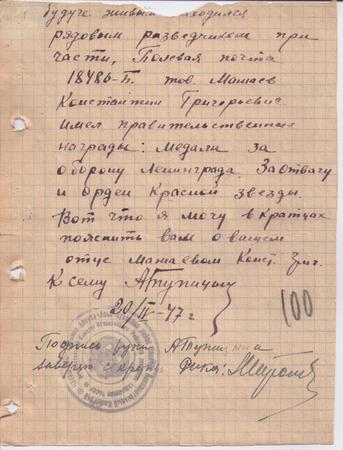 будуче живым находился
рядовым разведчиком при
части, Полевая почта
18486-П. тов. Матаев
Константин Григорьевич
имел правительственные
награды: Медали за
оборону Ленинграда. За отвагу
и орден Красной звезды.
Вот что я могу в кратцах
пояснить вам о вашем
отце Матаевом Конст. Григ.
К сему
20/IV-47 г
100
Подпись руки
заверяю